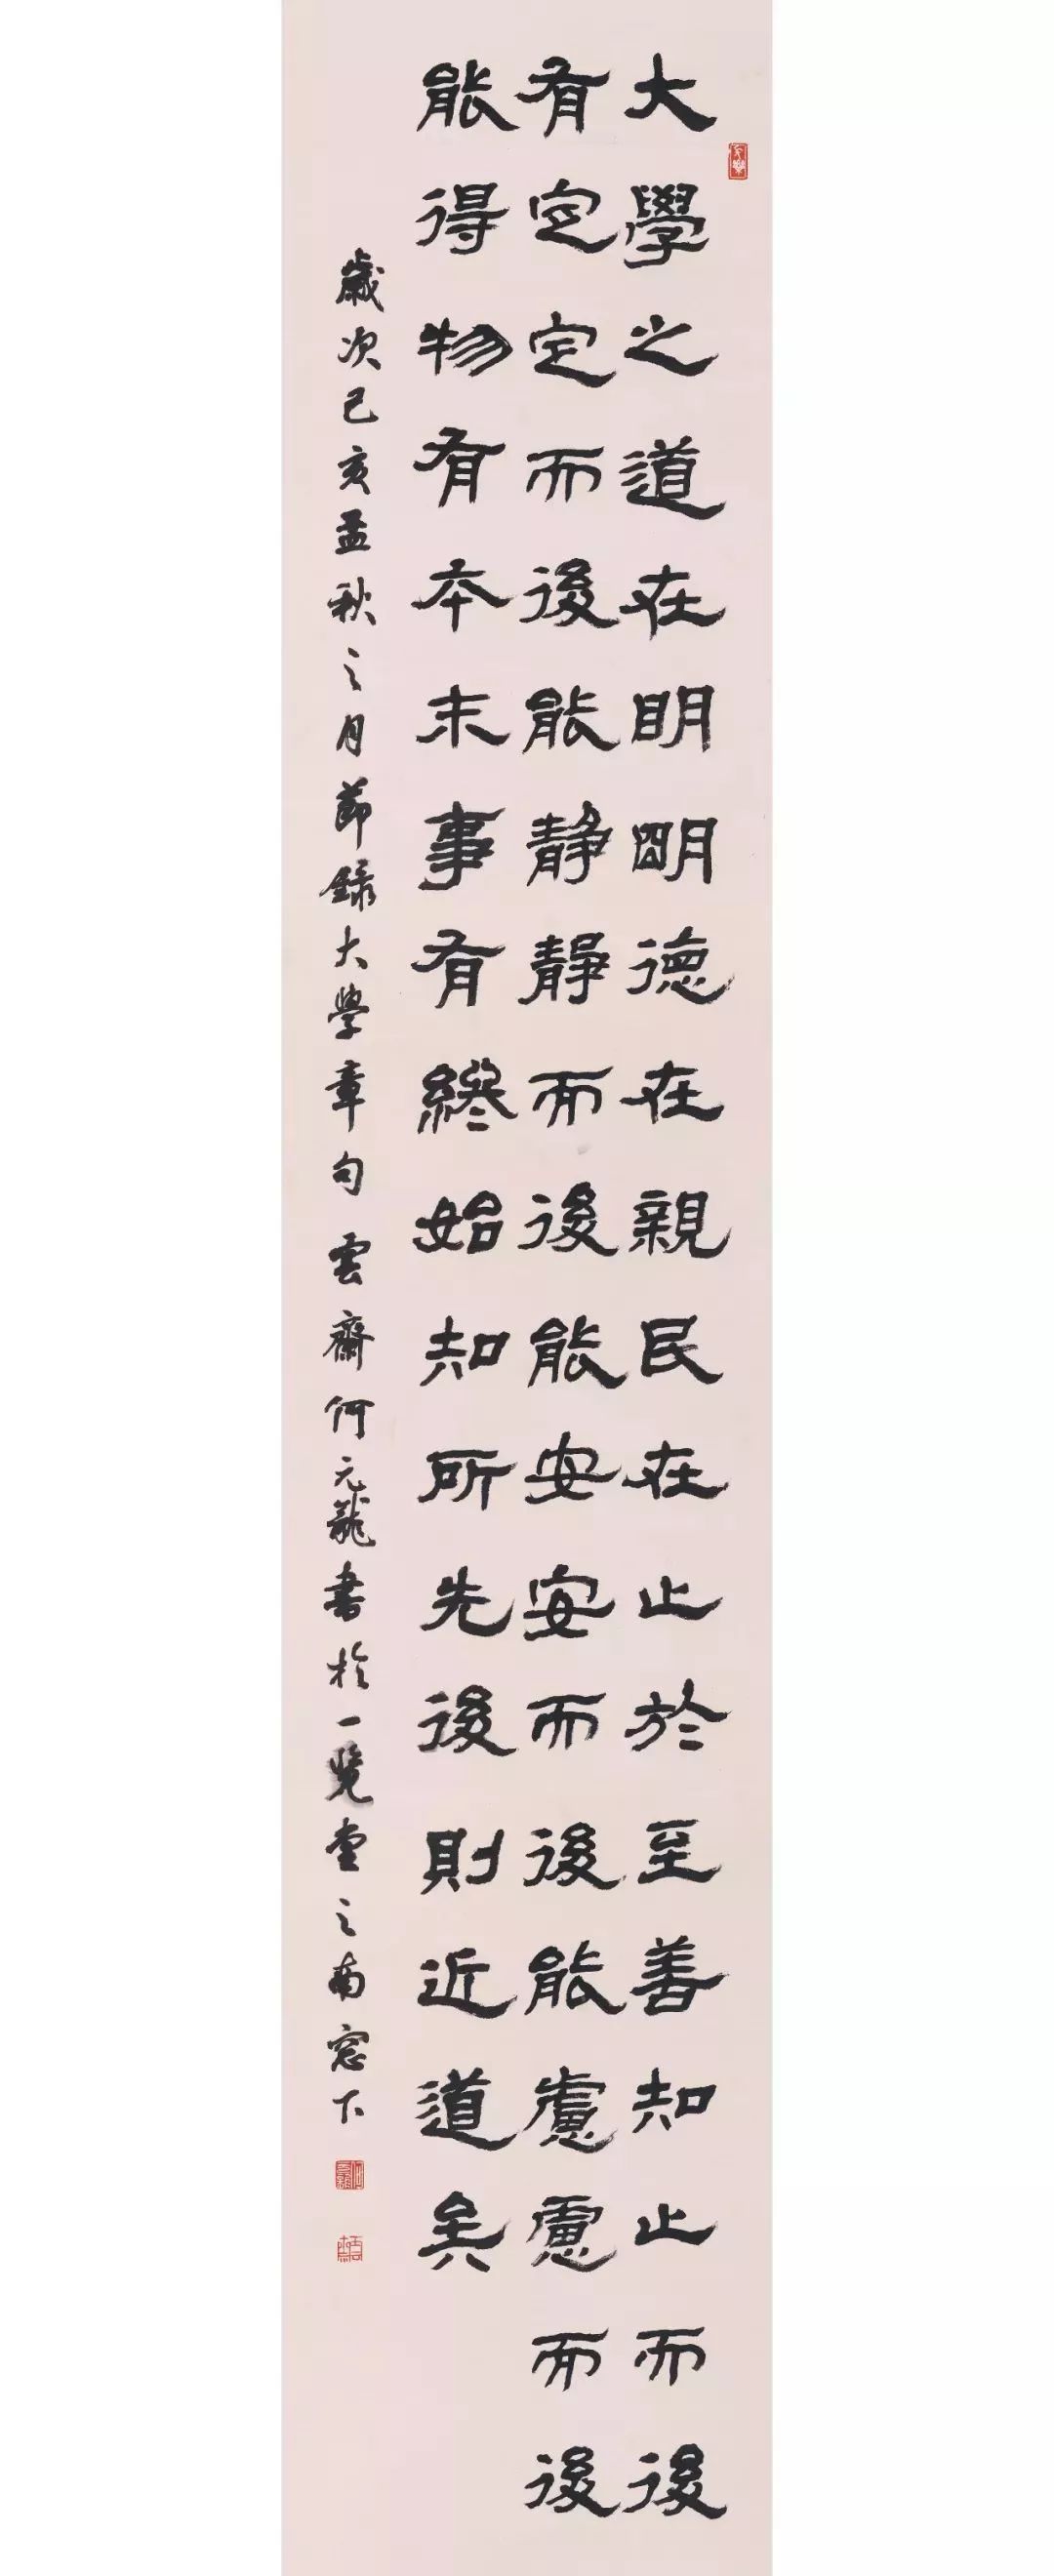 大學之道在明明德在親民在止於至善知止而後
有定定而後能静靜而後能安安而後能慮慮而後
能得物有本末事有終始知所先後則近道矣
歲次己亥孟秋之月節錄大學章句雲齋何元龍書於一覽堂之南窓下